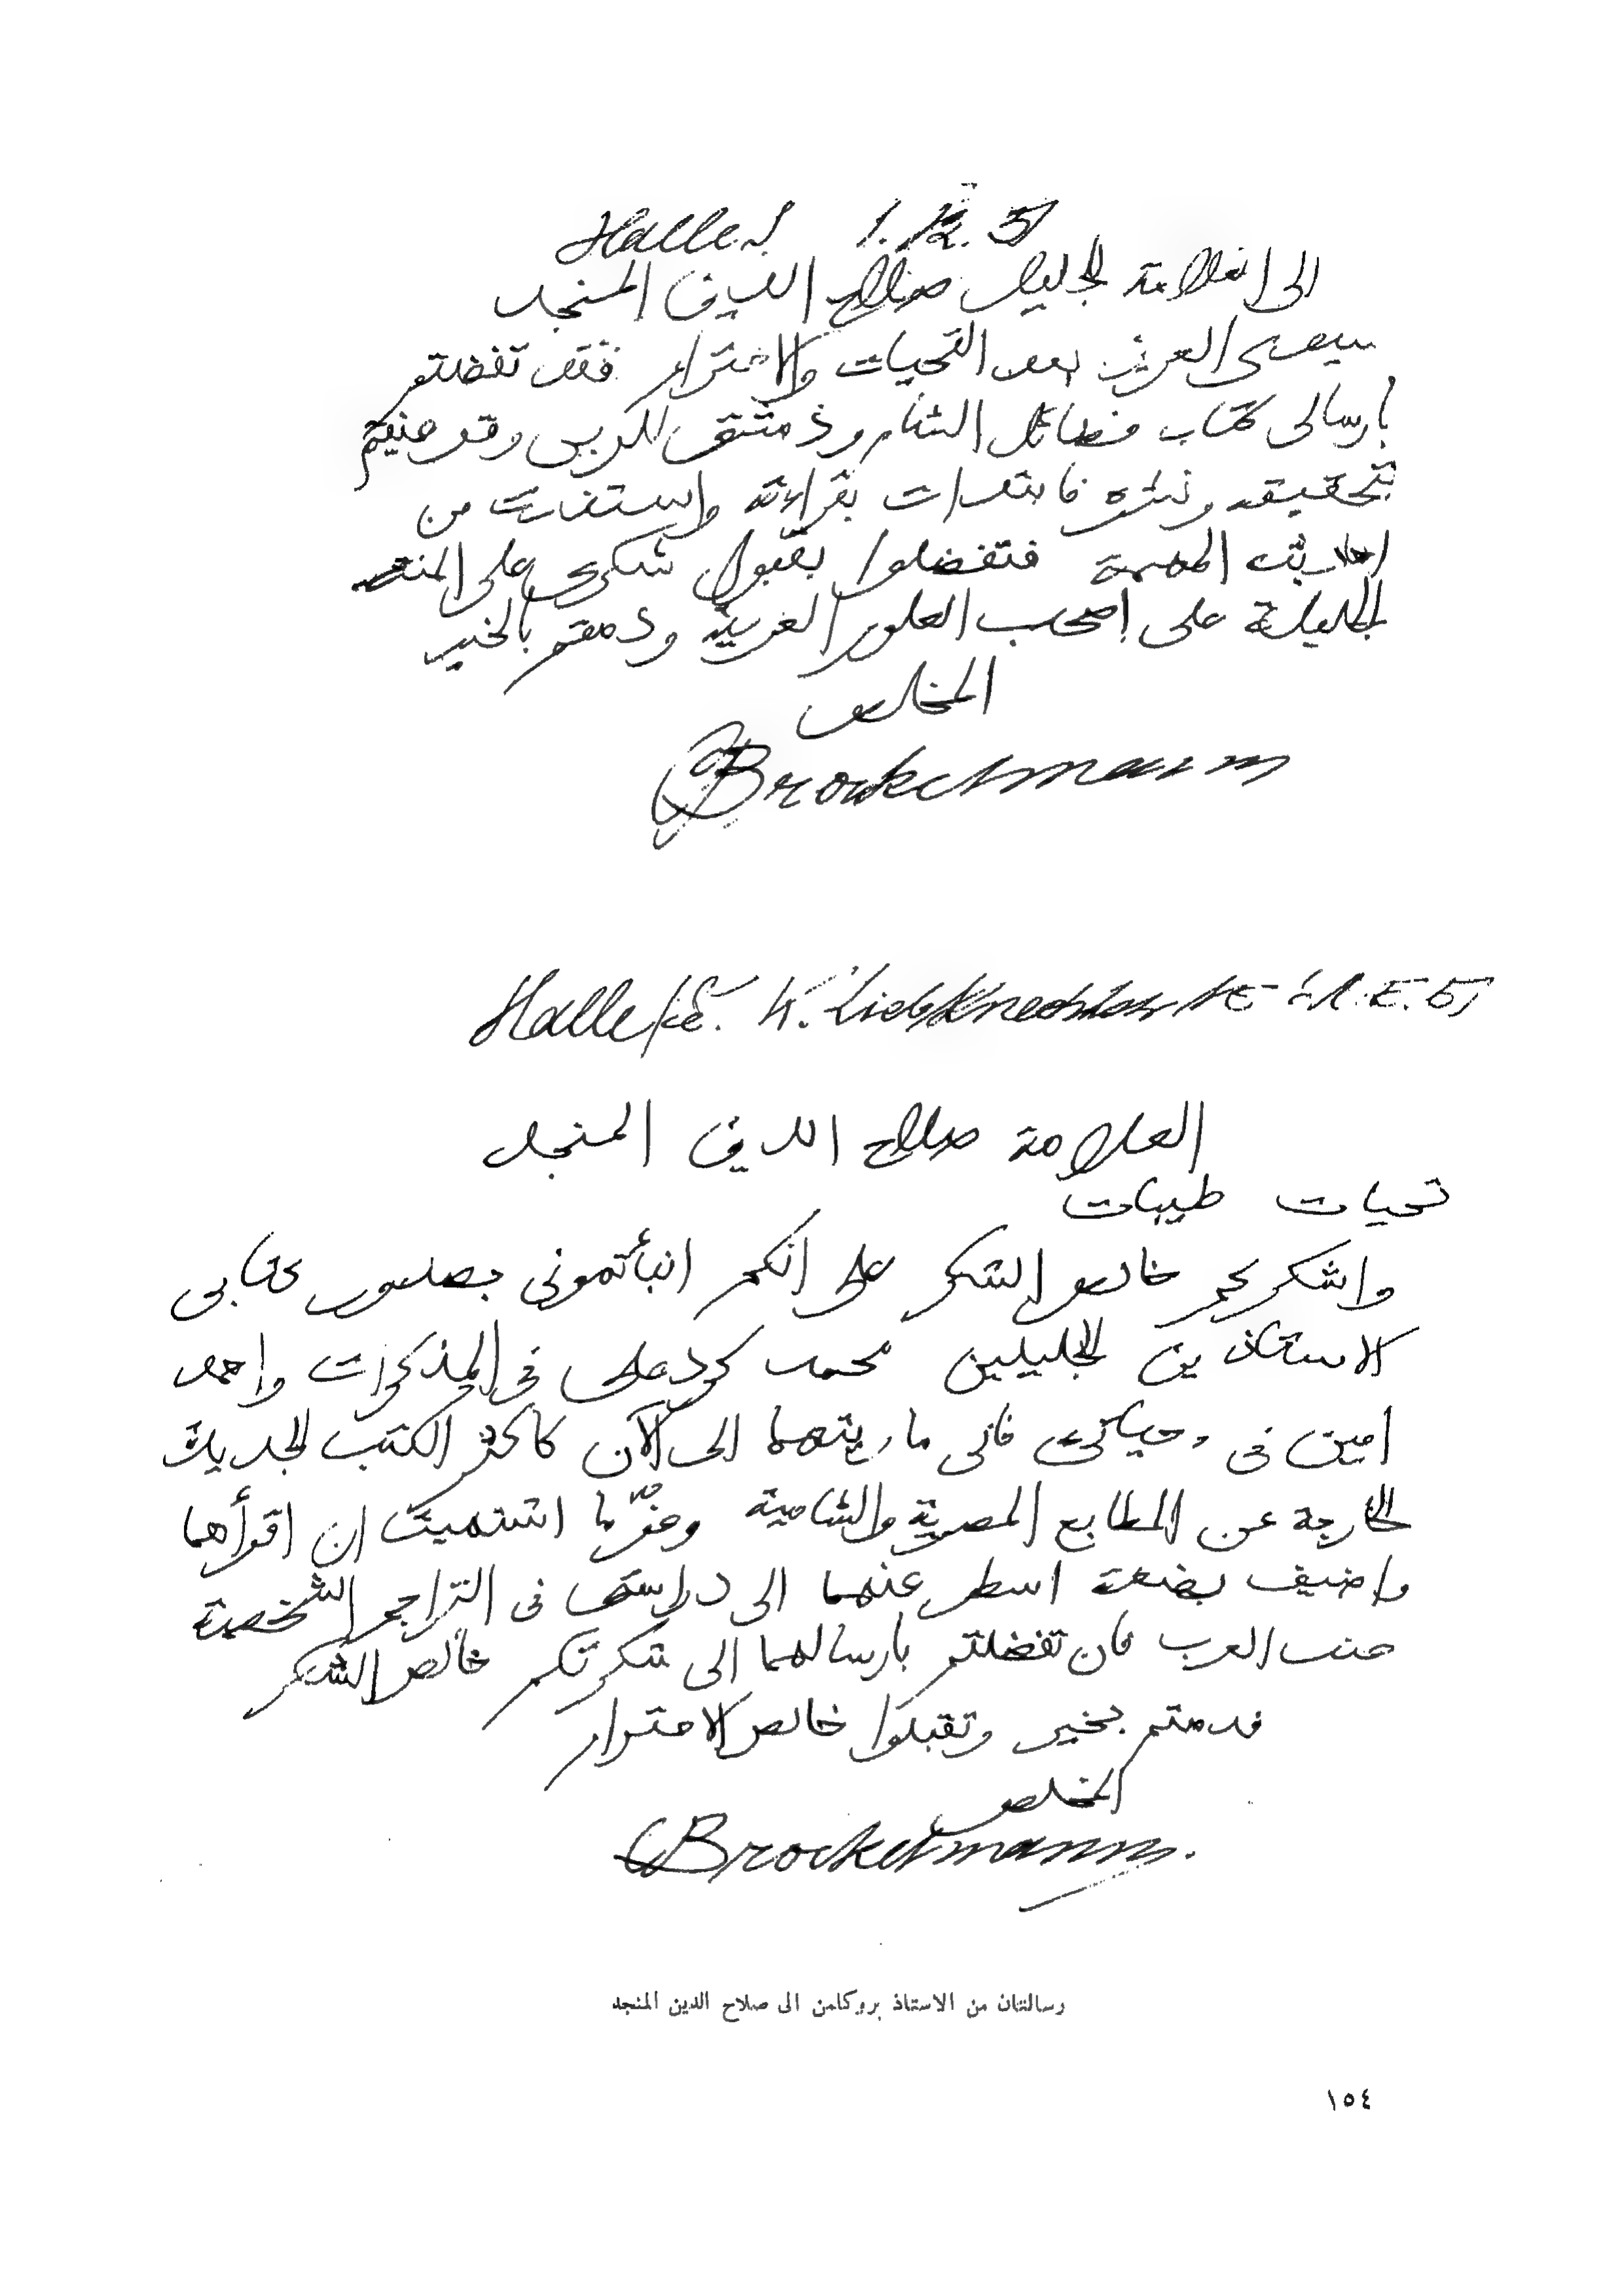 Halle 1.12.51
الى العلامة الجليل صلاح الدين المنجد
سيدى العزيز بعد التحيات والاحترام فقد تفضلتم
بارسالى كتاب فضائل الشام ودمشق للربعى وقد عنيتم
بتحقيقه ونشره فابتدات بقراءته واستفدت من
المهمة فتفضلوا بقبول شكرى على
الجليلة على اصحاب العلوم العربية ودمتم بالخير
المخلص
CBrockelmann
Halle/S. K. Liebknechtstr 51
العلامة صلاح الدين المنجد
تحيات طيبات
واشكركم خالص الشكر على انكم انبأتمونى بصدور كتابى
الاستاذين الجليلين محمد كرد على فى المذكرات واحمد
امين فى حياتى فانى ما ريتهما الى الآن كاكثر الكتب الجديدة
الخارجة عن المطابع المصرية والشامية اشتهيت ان اقرأهما
واضيف بضعة اسطر عنهما الى دراستى فى التراجم الشخصية
عند العرب فان تفضلتم بارسالهما الى شكرتكم خالص الشكر
فدمتم بخير وتقبلوا خالص الاحترام
المخلص
CBrockelmann.
رسالتان من الاستاذ بروكلمن الى صلاح الدين المنجد
١٥٤